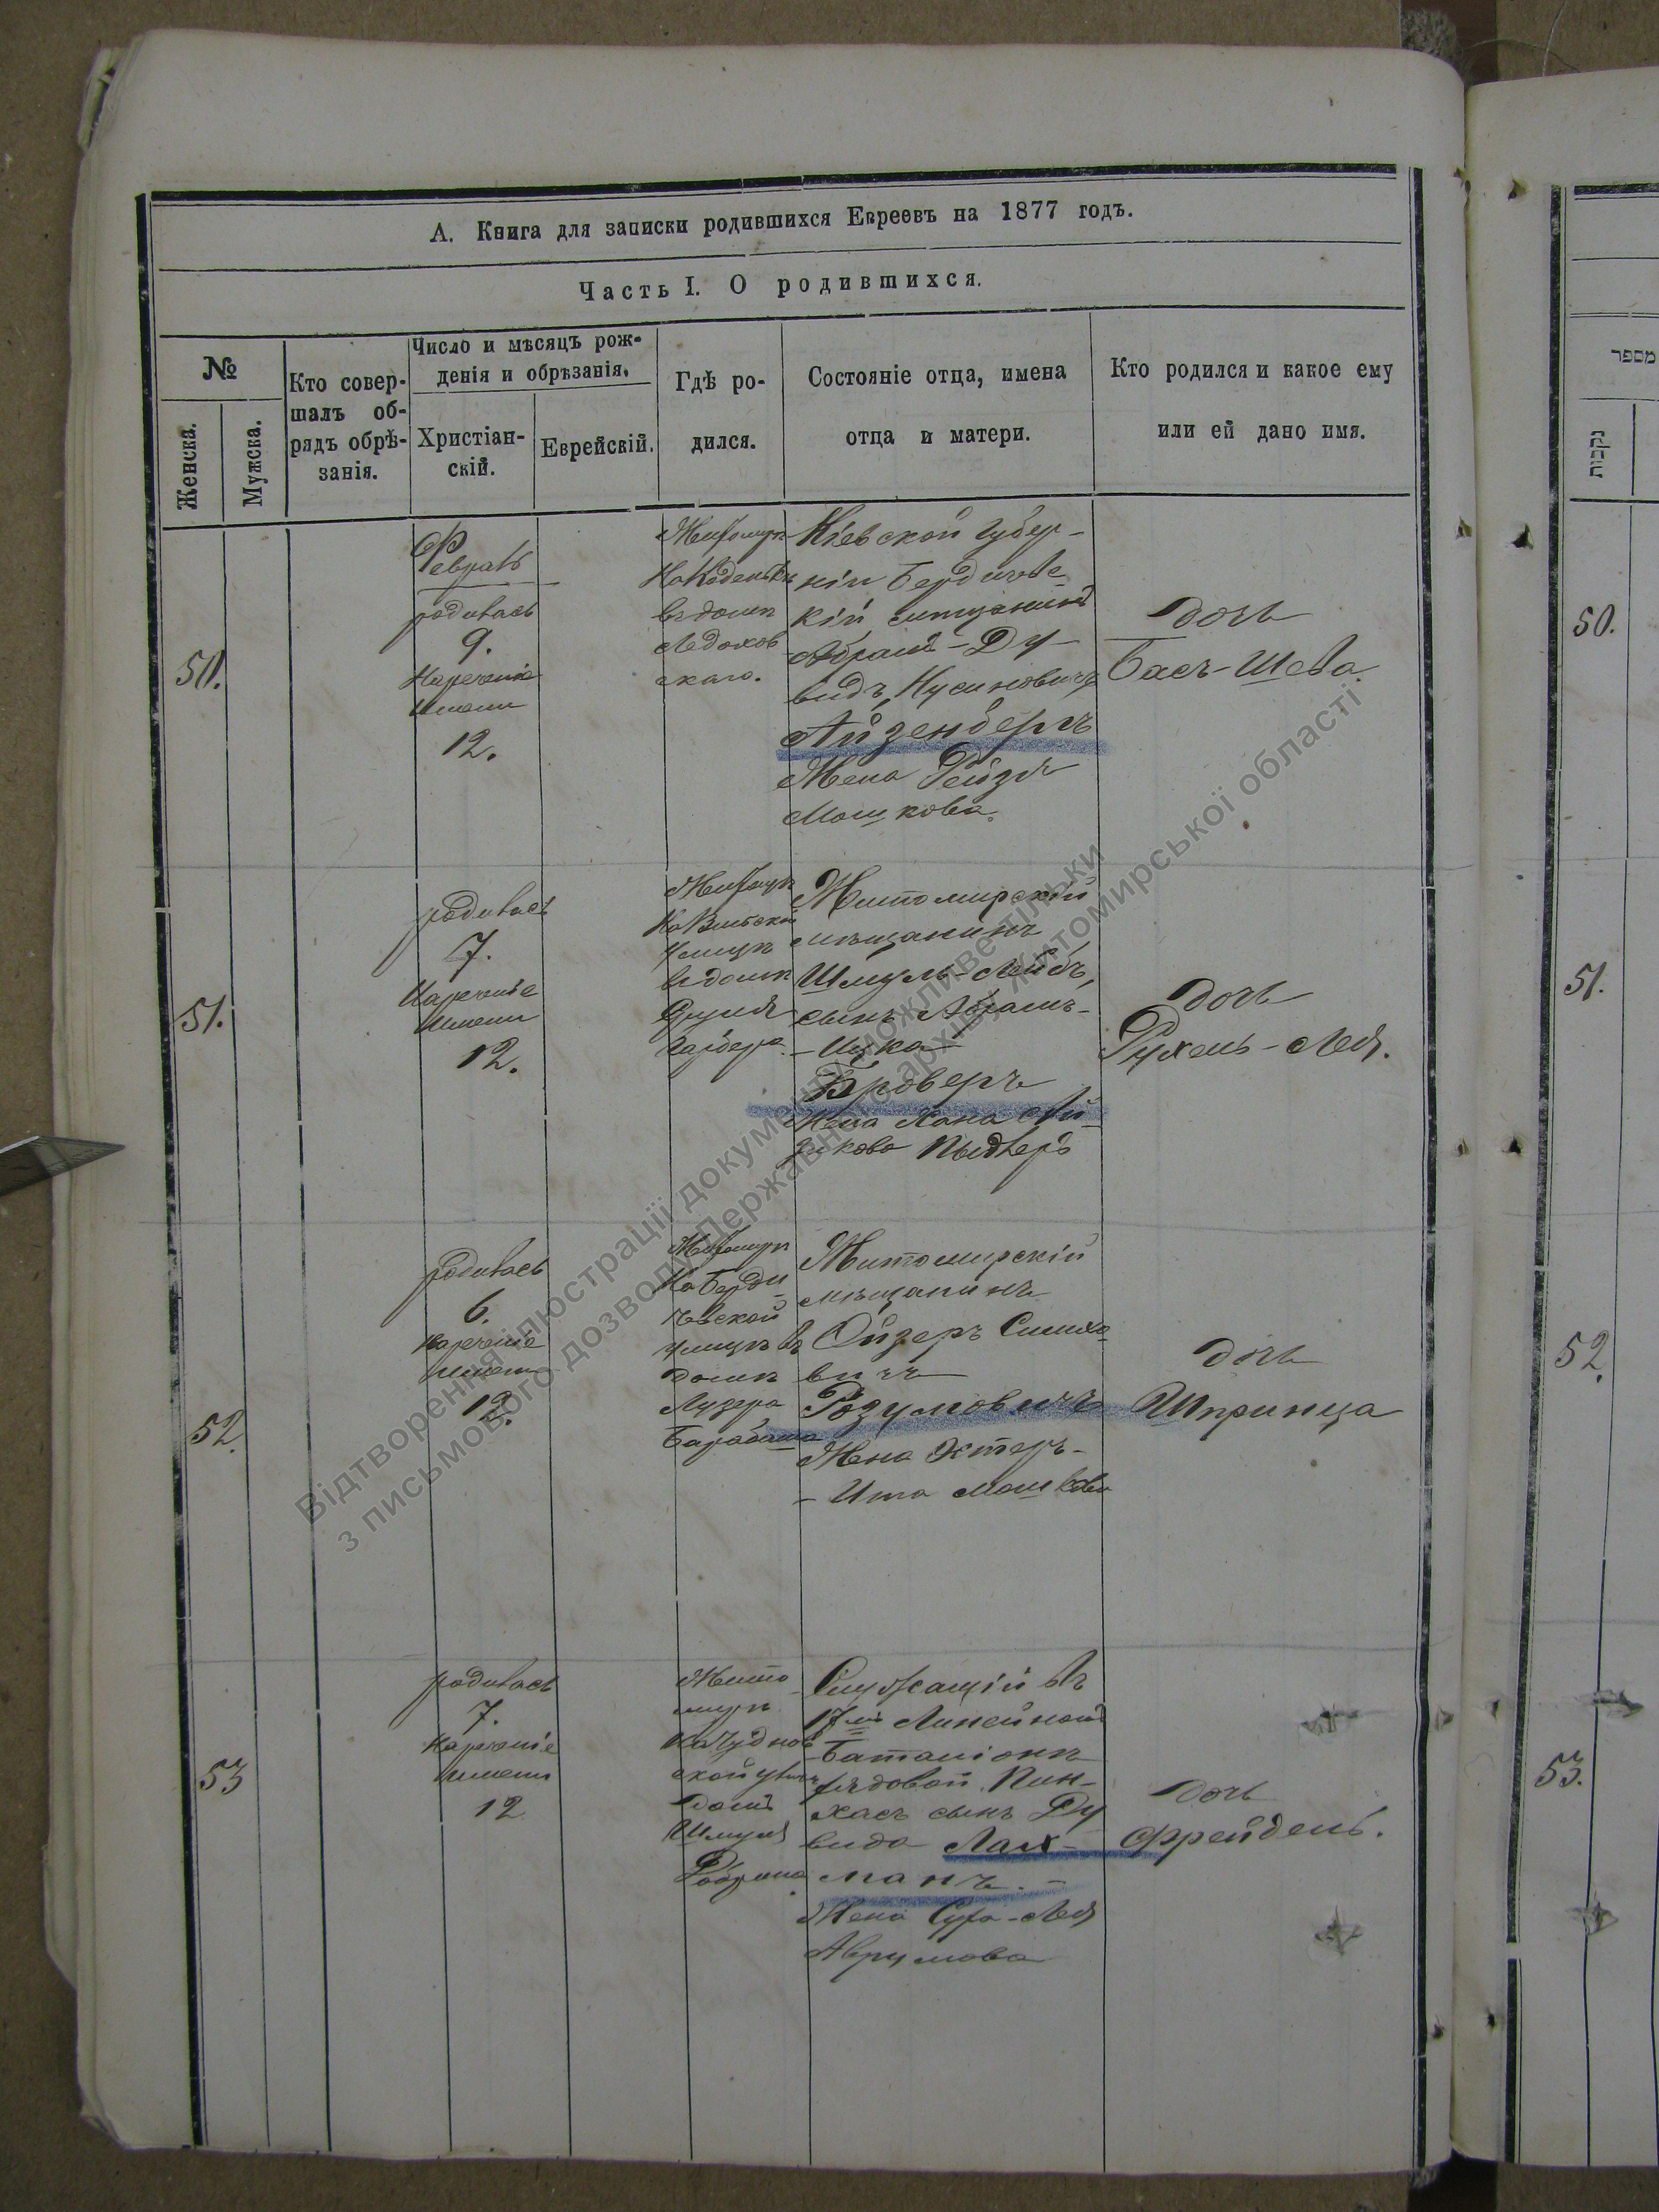 А. Книга для записки родившихся Евреевъ на 1877 годъ.
Часть I. О родившихся.
№
Женска.
Мужска.
Кто совер-
шалъ об-
рядъ обрѣ-
занія.
Число и мѣсяцъ рож-
денія и обрѣзанія.
Христіан-
скій.
Еврейскій.
Гдѣ ро-
дился.
Состояніе отца, имена
отца и матери.
Кто родился и какое ему
или ей дано имя.
50.
Февраль
родилась
9.
Нареченіе
имени
12.
Житомірѣ
въ домѣ
Ледохов
скаго.
Кіевской губер-
ніи Бердичевс
кій мѣщанинъ
Абрамъ-Ду-
видъ Нусиновичъ
Айзенбергъ
Жена Рейзя
Мошкова.
дочь
Басъ-Шева.
51.
родилась
7.
Нареченіе
имени
12.
Житомірѣ
На Вильской
улицѣ
въ домѣ
Житомирскій
мѣщанинъ
Шмуль-Лейбъ,
сынъ Абрамъ-
-Ицка
Броверъ
Жена Хана Ай-
зикова
дочь
Рухель-Лея.
52.
родилась
6.
Нареченіе
имени
12.
Житомірѣ
На Берди
чевской
улицѣ въ
домѣ
Лузера
Барабаша
Житомирскій
мѣщанинъ
Ойзеръ Симхо-
вичъ
Розумовичъ
Жена Эстеръ-
-Ита Мошкова
дочь
Шпринца
53
родилась
7.
Нареченіе
имени
12
Жито
мірѣ
На Чуднов
ской улицѣ
домѣ
Шмуля
Служащій въ
17мъ Линейномъ
Баталіонѣ
рядовой Пин-
хасъ сынъ Ду
вида Лах-
манъ.-
Жена Сура-Лея
Аврумова
дочь
Фрейдель.
מספר
נקבות
50.
51.
52.
53.
Відтворення ілюстрації документу можливе тільки
з письмового дозволу Державного архіву Житомирської області